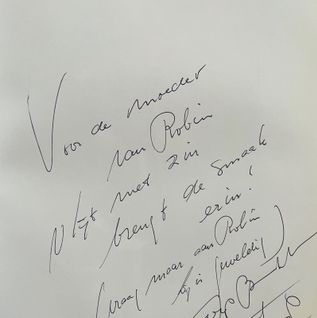 Voor de moeder
van Robin
Vlijt met zin
brengt de smaak
erin!
(vraag maar aan Robin
hij is geweldig)